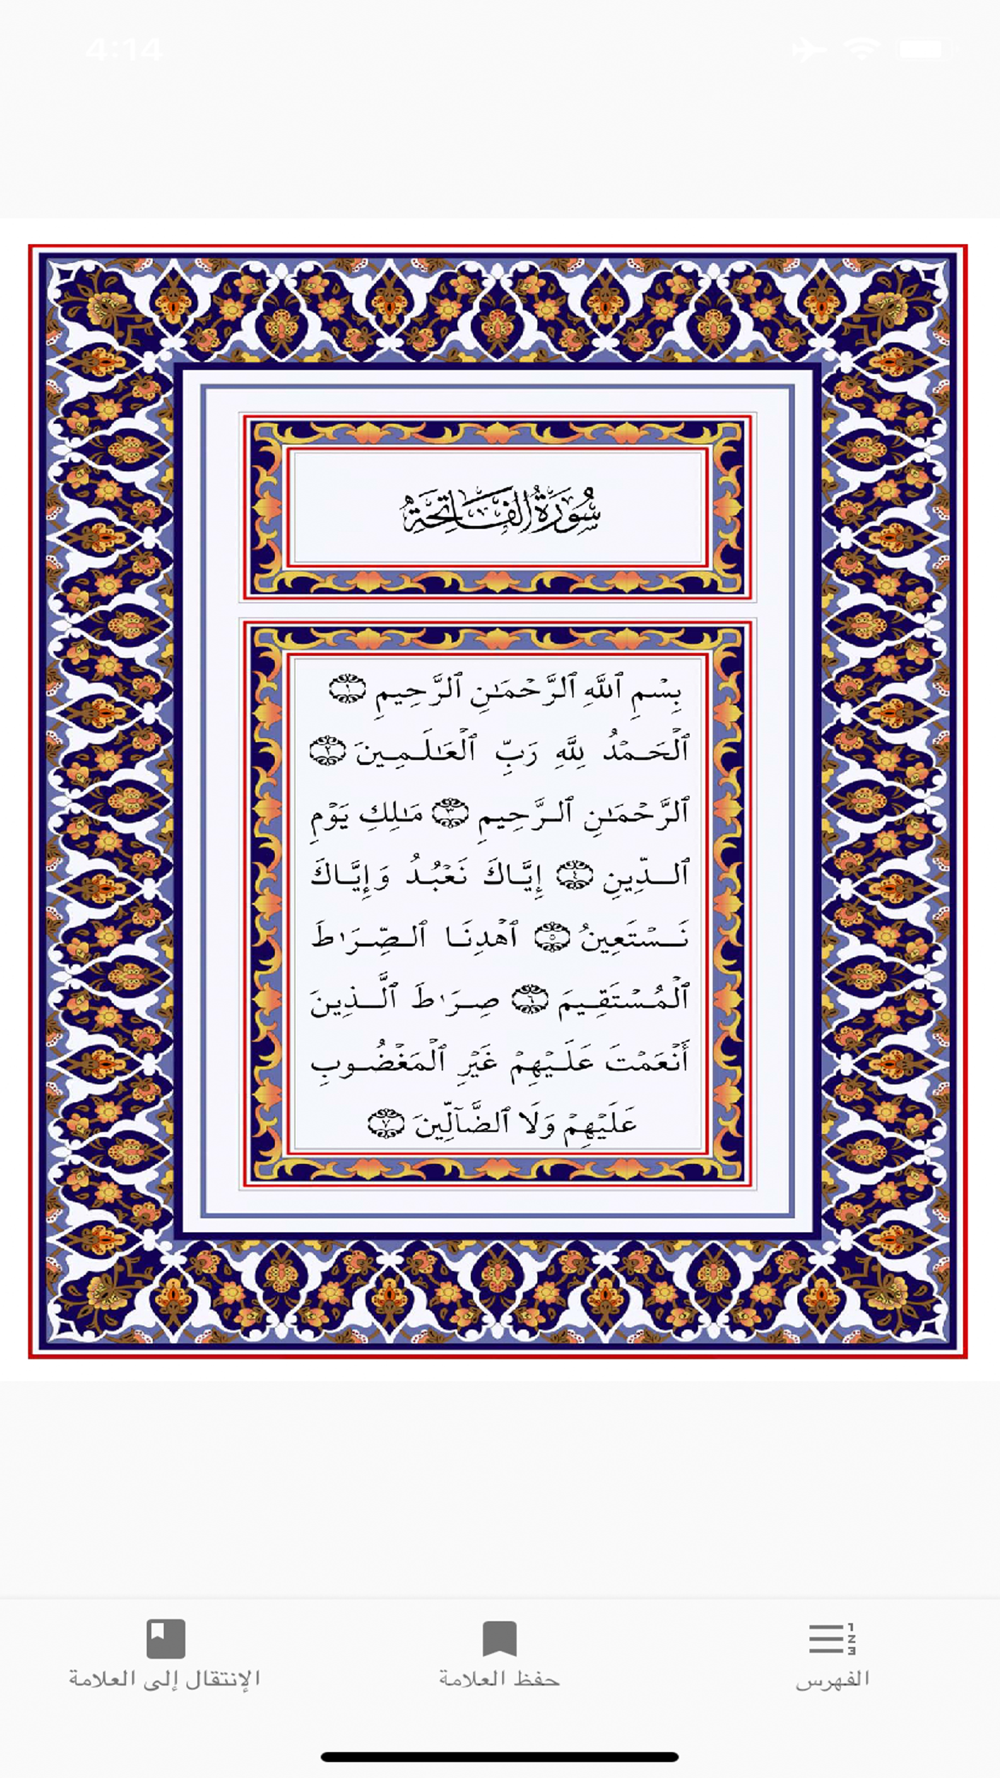 4:14
سُورَةُ الفَاتِحَةِ
بِسْمِ ٱللَّهِ ٱلرَّحْمَـٰنِ ٱلرَّحِيمِ ١
ٱلْحَمْدُ لِلَّهِ رَبِّ ٱلْعَـٰلَمِينَ ٢
ٱلرَّحْمَـٰنِ ٱلرَّحِيمِ ٣ مَـٰلِكِ يَوْمِ
ٱلدِّينِ ٤ إِيَّاكَ نَعْبُدُ وَإِيَّاكَ
نَسْتَعِينُ ٥ ٱهْدِنَا ٱلصِّرَٰطَ
ٱلْمُسْتَقِيمَ ٦ صِرَٰطَ ٱلَّذِينَ
أَنْعَمْتَ عَلَيْهِمْ غَيْرِ ٱلْمَغْضُوبِ
عَلَيْهِمْ وَلَا ٱلضَّآلِّينَ ٧
الفهرس
حفظ العلامة
الإنتقال إلى العلامة